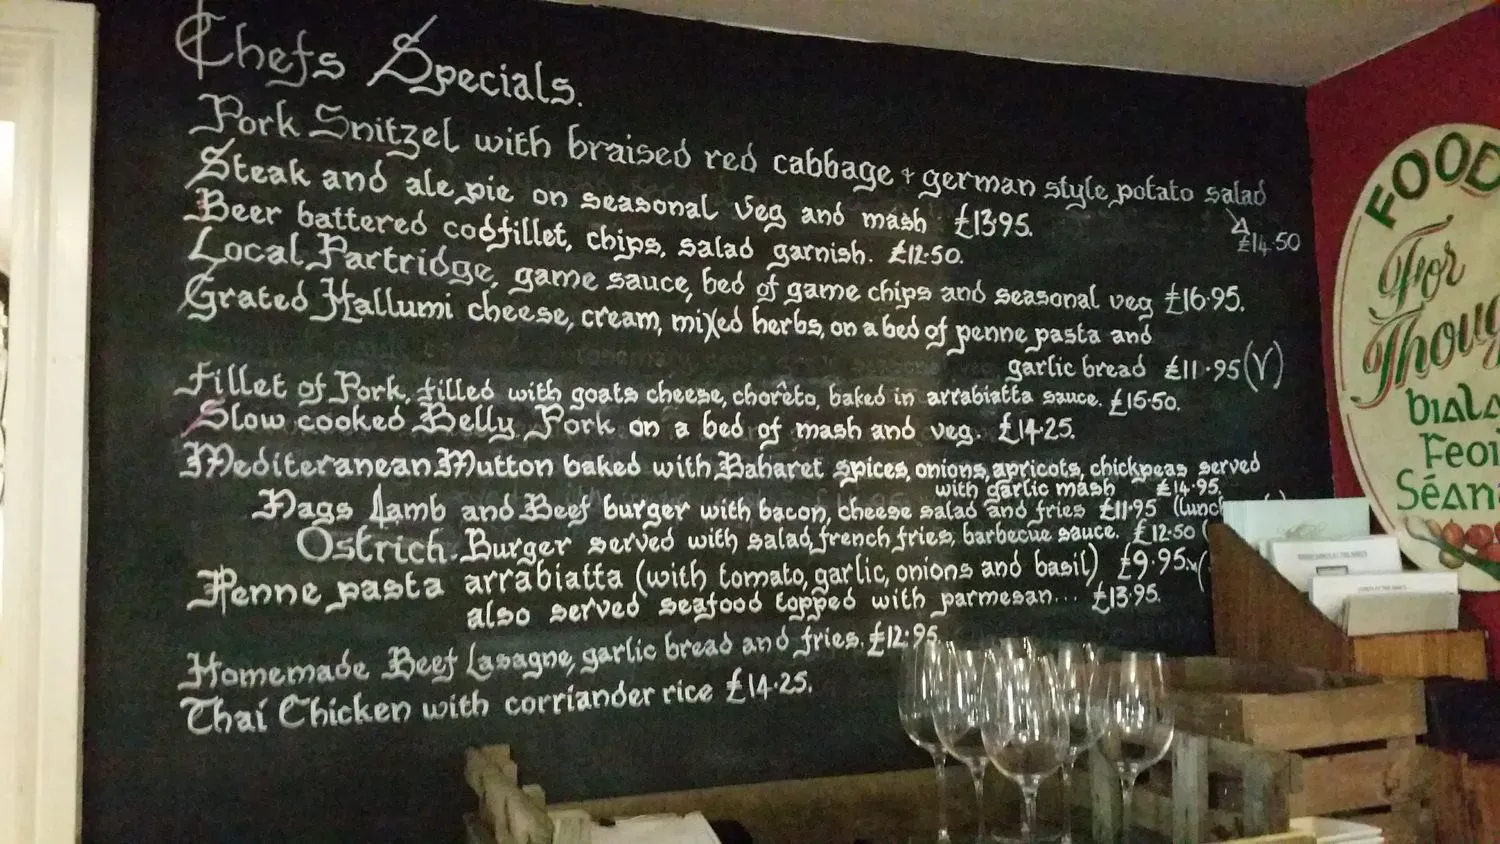 Chefs Specials.
Pork Snitzel with braised red cabbage + german style potato salad
£14.50
Steak and ale pie on seasonal veg and mash £13.95.
Beer battered codfillet, chips, salad garnish. £12.50.
Local Partridge, game sauce, bed of game chips and seasonal veg £16.95.
Grated Hallumi cheese, cream, mixed herbs, on a bed of penne pasta and
garlic bread £11.95 (V)
Fillet of Pork, filled with goats cheese, chorêto, baked in arrabiatta sauce. £15.50.
Slow cooked Belly Pork on a bed of mash and veg. £14.25.
Mediteranean Mutton baked with Baharet spices, onions, apricots, chickpeas served
with garlic mash £14.95.
Nags Lamb and Beef burger with bacon, cheese salad and fries £11.95 (lunch
Ostrich. Burger served with salad, french fries, barbecue sauce. £12.50 (
Penne pasta arrabiatta (with tomato, garlic, onions and basil) £9.95. (
also served seafood topped with parmesan... £13.95.
Homemade Beef Lasagne, garlic bread and fries. £12.95.
Thai Chicken with corriander rice £14.25.
FOOD
For
Thoug
bıala
Feoi
Séan